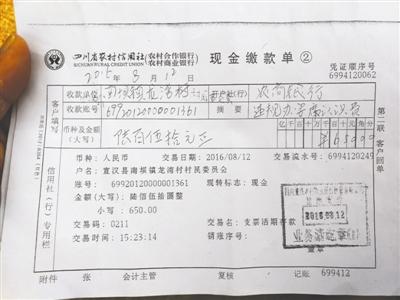 四川省农村信用社(农村合作银行 农村商业银行) 现金缴款单②
SICHUAN RURAL CREDIT UNION
凭证顺序号
6994120062
2015 8 12
收款单位
农商银行
收款账号 摘要 违规办
币种及金额
(大写)
陆百伍拾元正
客户填写
第二联 客户回单
币种:人民币 交易日期:2016/08/12 交易流水号:6994120249
户名:宣汉县南坝镇龙湾村村民委员会
账号:69920120000001361 现转标志:现金
金额(大写):陆佰伍拾圆整
小写:650.00
交易码:0211 交易名称:支票活期存款
交易时间:15:23:14 销账序号:
信用社(行)专用栏
2016.08.12
业务清讫章
附件 张 会计主管 复核 记账 699412